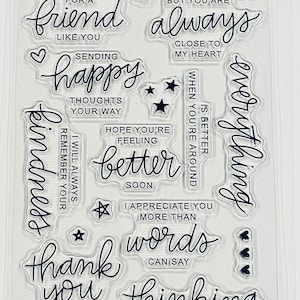 FOR A
friend
LIKE YOU
BUT YOU ARE
always
CLOSE TO
MY HEART
SENDING
happy
THOUGHTS
YOUR WAY
everything
IS BETTER
WHEN YOU'RE AROUND
kindness
I WILL ALWAYS
REMEMBER YOUR
HOPE YOU'RE
FEELING
better
SOON
I APPRECIATE YOU
MORE THAN
words
CAN SAY
thank
you
thinking